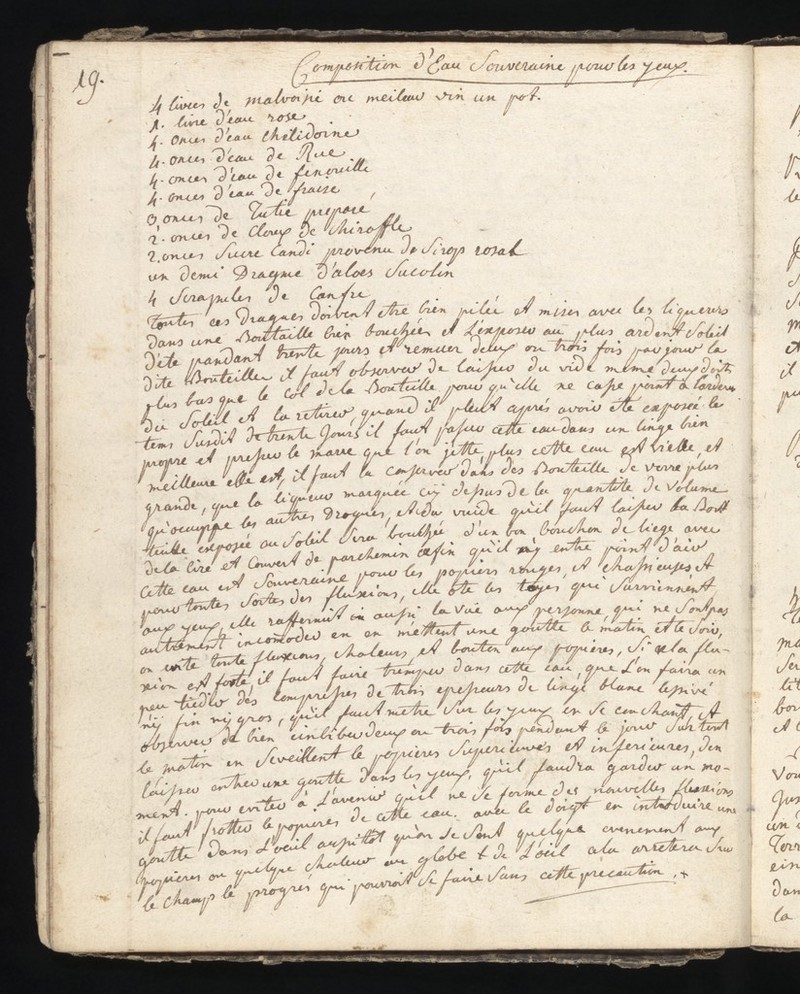 19.
Composition d'Eau Souveraine pour les yeux.
4 livres de malvoisié ou meileur vin un pot.
1. livre d'eau rose
4. onces d'eau Chélidoine
4. onces d'eau de Rue
4. onces d'eau de fenouille
4. onces d'eau de fraise
3 onces de Tutie preparé
2. onces de Cloux de Chiroffle
2. onces Sucre Candi provenu de Sirops rosat
un demi Dragme d'aloes Sucotin
4 Scrupules de Canfre
toutes ces Drogues doivent etre bien pilée et mises avec les liqueurs
dans une Bouttaille bien bouchée, et L'exposer au plus ardent Soleil
d'été pandant trente jours et remuer deux ou trois fois par jour la
dite Bouteille, il faut observer de laisser du vide meme deux doits
plus bas que le Col de la Bouteille pour qu'elle ne casse point à l'ardeur
du Soleil et la retirer quand il pleut aprés avoir été exposée le
tems Susdit de trente Jours il faut passer cette eau dans un linge bien
propre et presser le marre que l'on jette, plus cette eau est vielle, et
meilleure elle est, il faut la conserver dans des Bouteille de verre plus
grande, que la liqueur marquée cy depus de la quantité de volume
qu'occuppe les autres Drogues, et du vuide qu'il faut laisser La Bout
teille exposée au Soleil Sera bouchée d'un bon bouchon de liege avec
de la Cire et Couvert de parchemin afin qu'il n'y entre point d'air
Cette eau est Souveraine pour les popiers rouges, et chassieuses et
pour toutes Sortes des fluxions, elle ôte les tayes, qui Surviennent
aux yeux, elle raffermit aussi la vüe aux personne qui ne Sont pas
autrement incomodée en en mettent une goutte le matin et le Soir,
on evite toute fluxions, Chaleurs, et bouton aux popières, Si la flu-
xion est forte, il faut faire tremper dans cette eau, que L'on faira un
peu tiedir des Compresses de trois epesseurs de linge blanc lessivé
n'y fin n'y gros, qu'il faut metre Sur les yeux en Se couchant, et
observer de bien deux ou trois fois pendant le jour Surtout
le matin en S'eveillent le popieres Superieures et inferieures, d'en
laisser entrer une goutte dans les yeux, qu'il faudra garder un mo-
ment. pour eviter à L'avenir qu'il ne Se forme des nouvelles fluxions
il faut frotter le popieres de cette eau. avec le doigt en introduire une
goutte dans L'oeil aussitôt qu'on Se Sent quelque evenement aux
popieres ou quelque chaleur au globe de L'oeil arretera Sur
le champs le progrés qui pourroit Se faire Sans cette precaution.